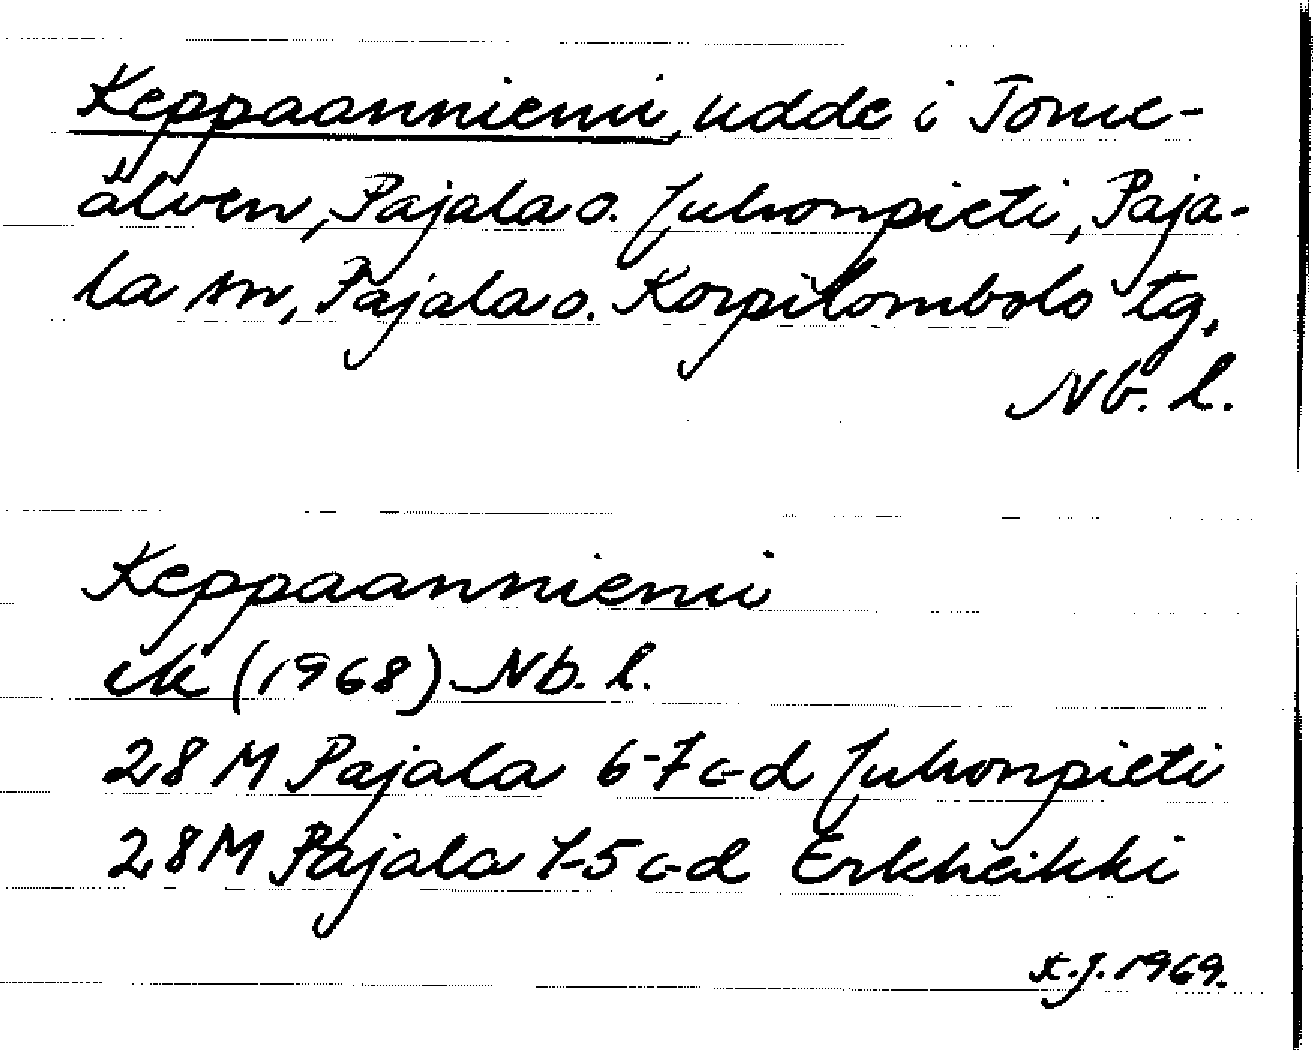 Keppaanniemi, udde i Torne-
älven, Pajala o. Juhonpieti, Paja-
la sn, Pajala o. Korpilombolo tg,
Nb. l.
Keppaanniemi
ek (1968) Nb. l.
28 M Pajala 6-7 c-d Juhonpieti
28 M Pajala 7-5 c-d Erkheikki
K.J. 1969.